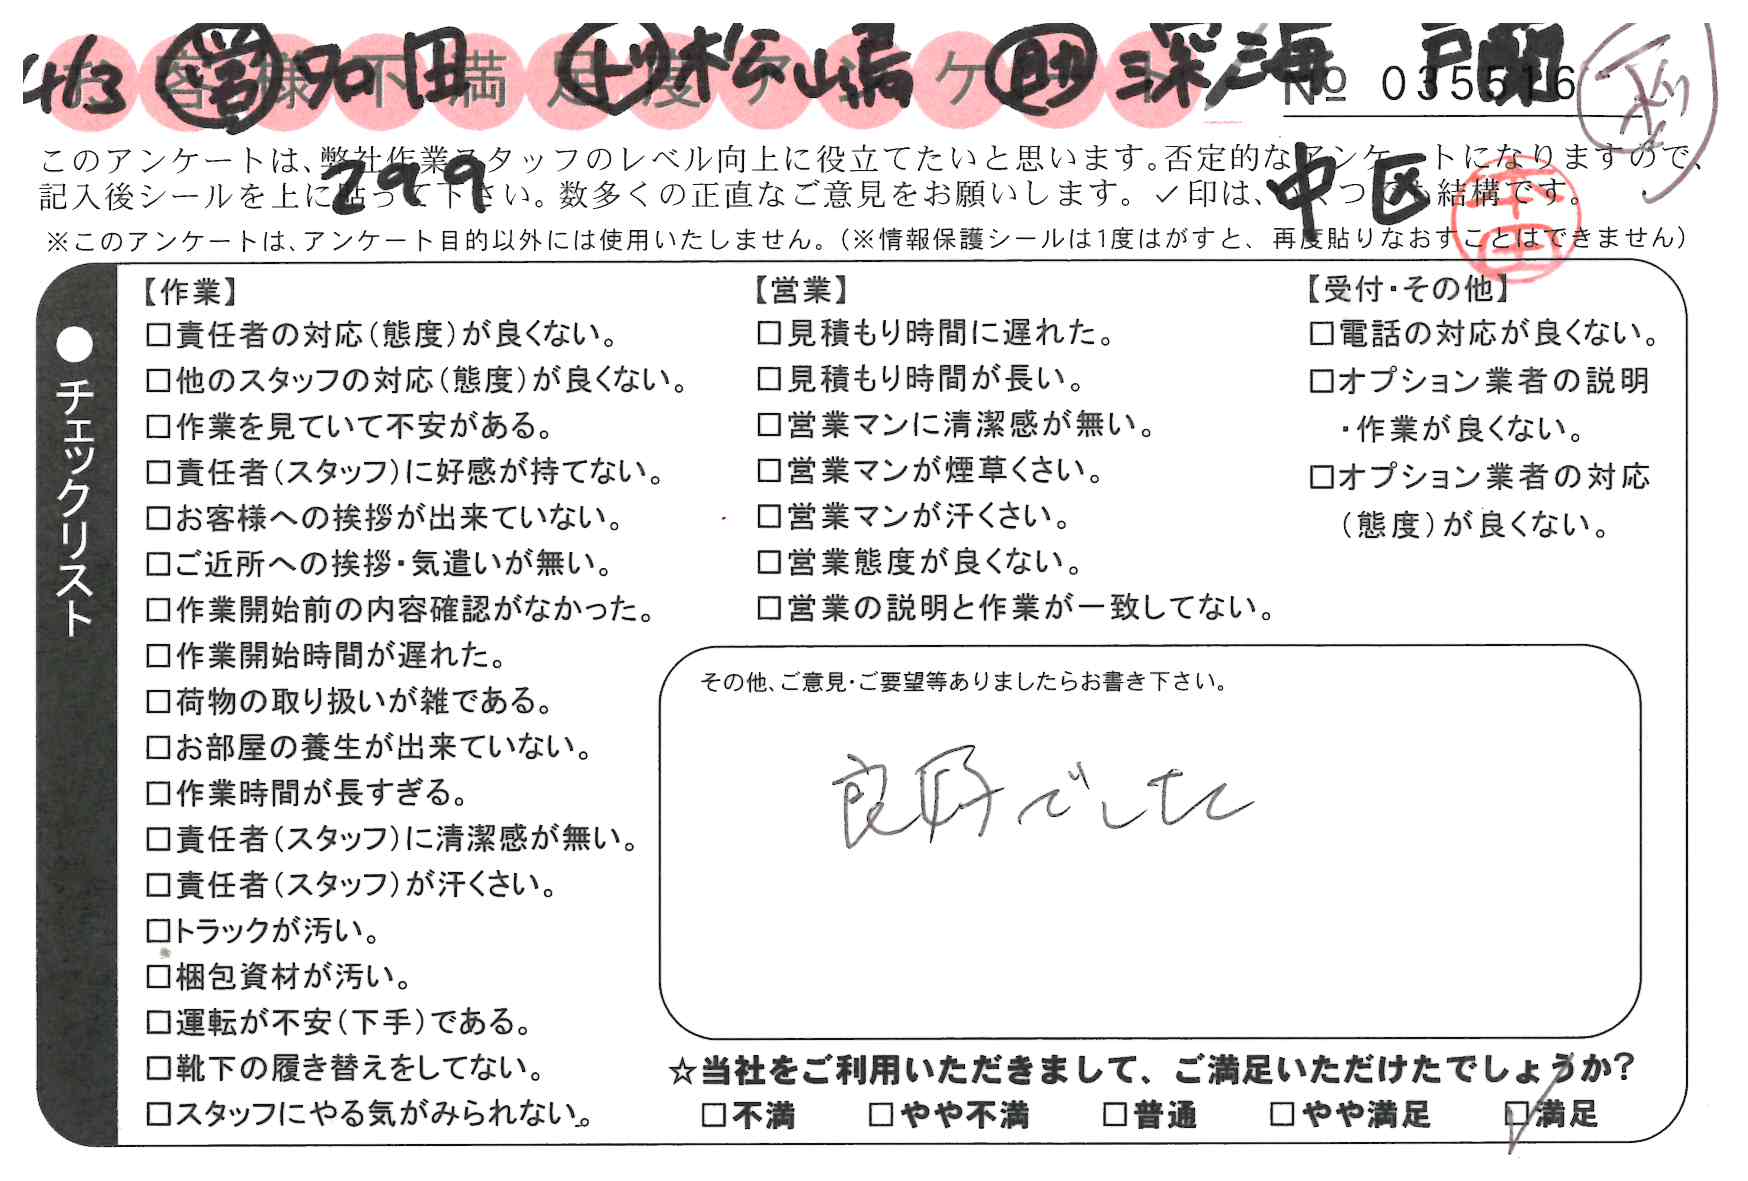 4/13 営 知田 ト 松山脇 助 深海 戸開
お客様不満足度アンケート № 035516
このアンケートは、弊社作業スタッフのレベル向上に役立てたいと思います。否定的なアンケートになりますので、
記入後シールを上に貼って下さい。数多くの正直なご意見をお願いします。✓印は、いくつでも結構です。
299 中区
※このアンケートは、アンケート目的以外には使用いたしません。（※情報保護シールは1度はがすと、再度貼りなおすことはできません）
●チェックリスト
【作業】
□責任者の対応（態度）が良くない。
□他のスタッフの対応（態度）が良くない。
□作業を見ていて不安がある。
□責任者（スタッフ）に好感が持てない。
□お客様への挨拶が出来ていない。
□ご近所への挨拶・気遣いが無い。
□作業開始前の内容確認がなかった。
□作業開始時間が遅れた。
□荷物の取り扱いが雑である。
□お部屋の養生が出来ていない。
□作業時間が長すぎる。
□責任者（スタッフ）に清潔感が無い。
□責任者（スタッフ）が汗くさい。
□トラックが汚い。
□梱包資材が汚い。
□運転が不安（下手）である。
□靴下の履き替えをしてない。
□スタッフにやる気がみられない。
【営業】
□見積もり時間に遅れた。
□見積もり時間が長い。
□営業マンに清潔感が無い。
□営業マンが煙草くさい。
□営業マンが汗くさい。
□営業態度が良くない。
□営業の説明と作業が一致してない。
【受付・その他】
□電話の対応が良くない。
□オプション業者の説明
・作業が良くない。
□オプション業者の対応
（態度）が良くない。
その他、ご意見・ご要望等ありましたらお書き下さい。
良好でした
☆当社をご利用いただきまして、ご満足いただけたでしょうか？
□不満 □やや不満 □普通 □やや満足 ☑満足